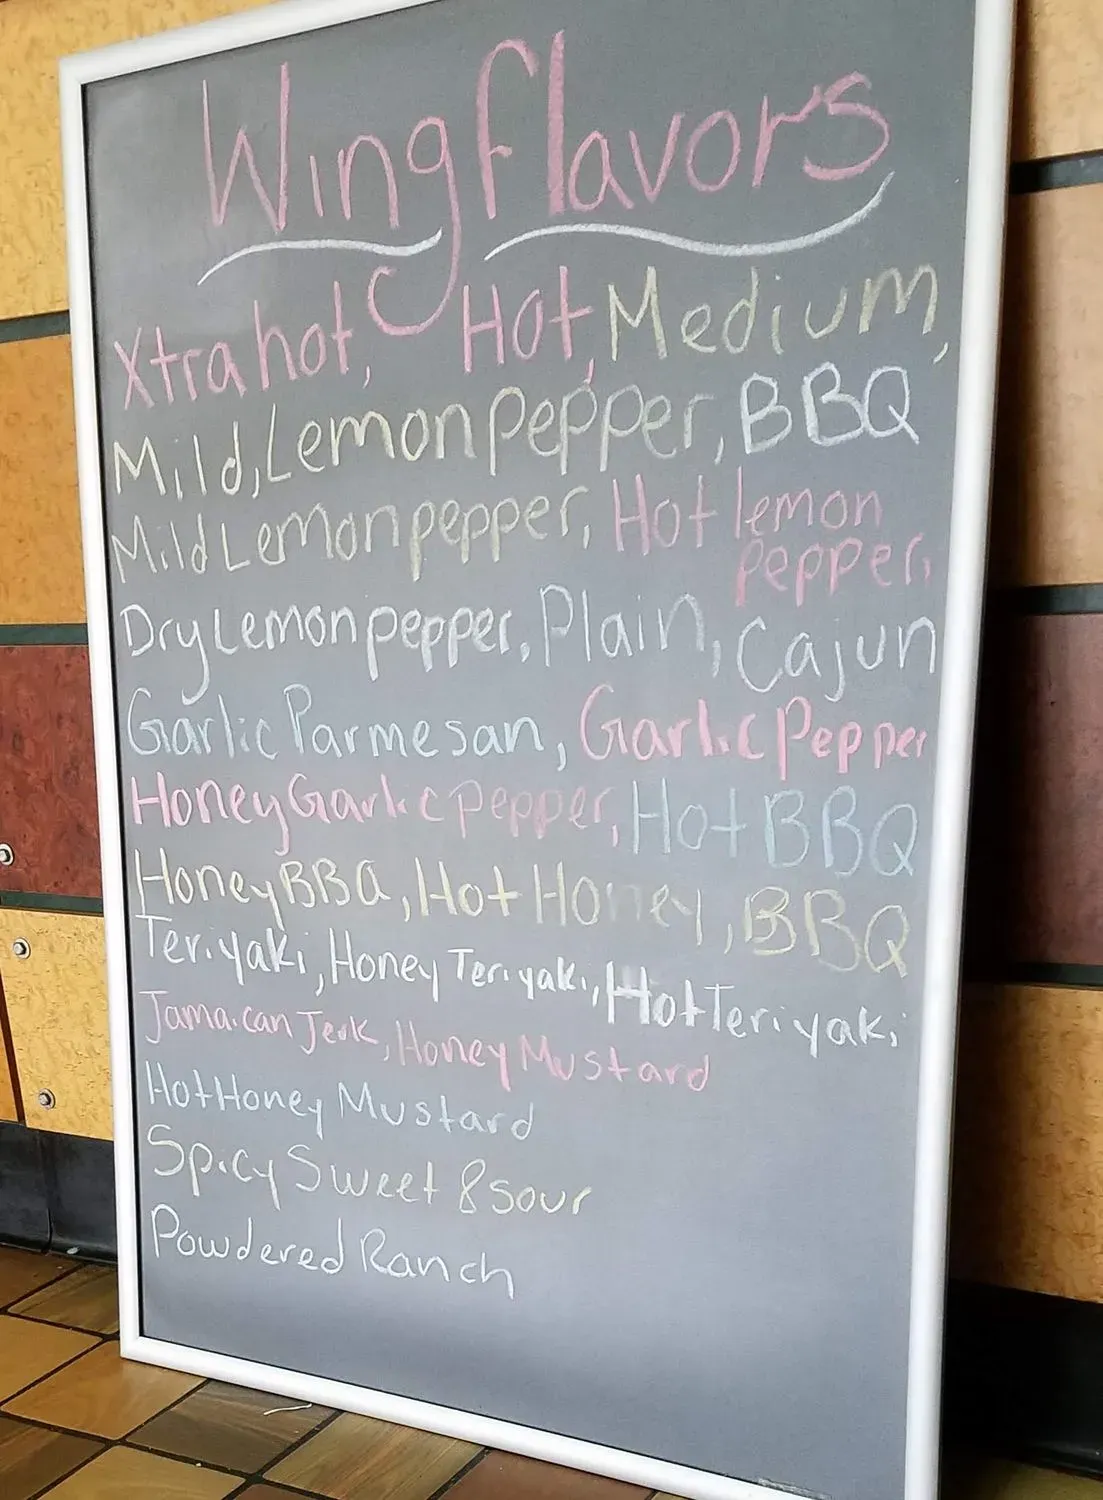 Wing flavors
Xtra hot, Hot, Medium,
Mild, Lemon pepper, BBQ
Mild Lemon pepper, Hot lemon
pepper,
Dry Lemon pepper, Plain, Cajun
Garlic Parmesan, Garlic Pepper
Honey Garlic pepper, Hot BBQ
Honey BBQ, Hot Honey, BBQ
Teriyaki, Honey Teriyaki, Hot Teriyaki
Jamaican Jerk, Honey Mustard
Hot Honey Mustard
Spicy Sweet & Sour
Powdered Ranch